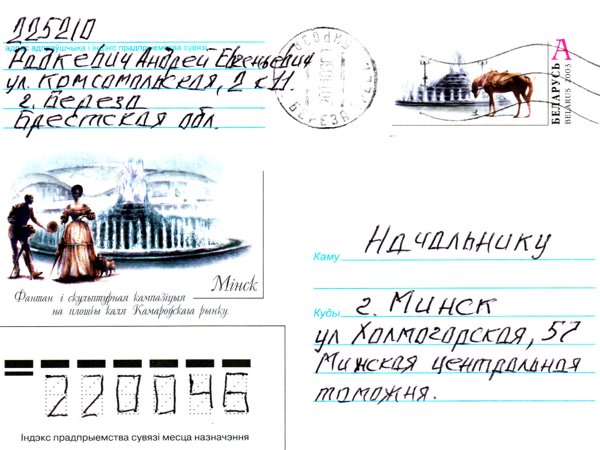 225210
адрас адпраўшчыка і індэкс прадпрыемства сувязі
Радкевич Андрей Евгеньевич
ул. Комсомольская, 2 к 11.
г. Береза
Брестская обл.
БЕРЕЗА
А
БЕЛАРУСЬ
BELARUS 2003
Мінск
Фантан і скульптурная кампазіцыя
на плошчы каля Камароўскага рынку.
Каму
Начальнику
Куды
г. Минск
ул Холмогорская, 57
Минская центральная
таможня.
220046
Індэкс прадпрыемства сувязі месца назначэння